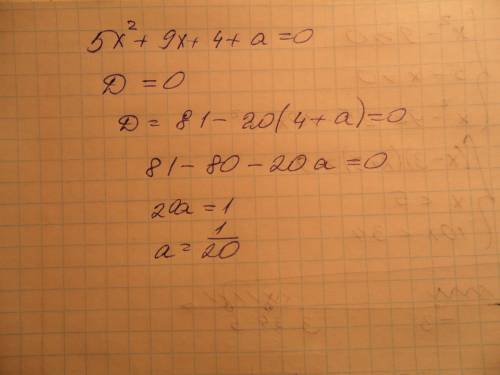 5x² + 9x + 4 + a = 0
D = 0
D = 81 - 20(4 + a) = 0
81 - 80 - 20a = 0
20a = 1
a = 1/20